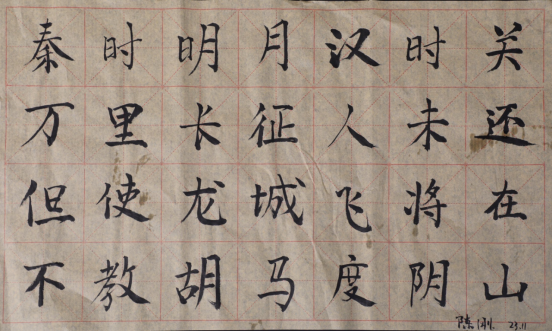 秦时明月汉时关
万里长征人未还
但使龙城飞将在
不教胡马度阴山
陈刚. 23.11